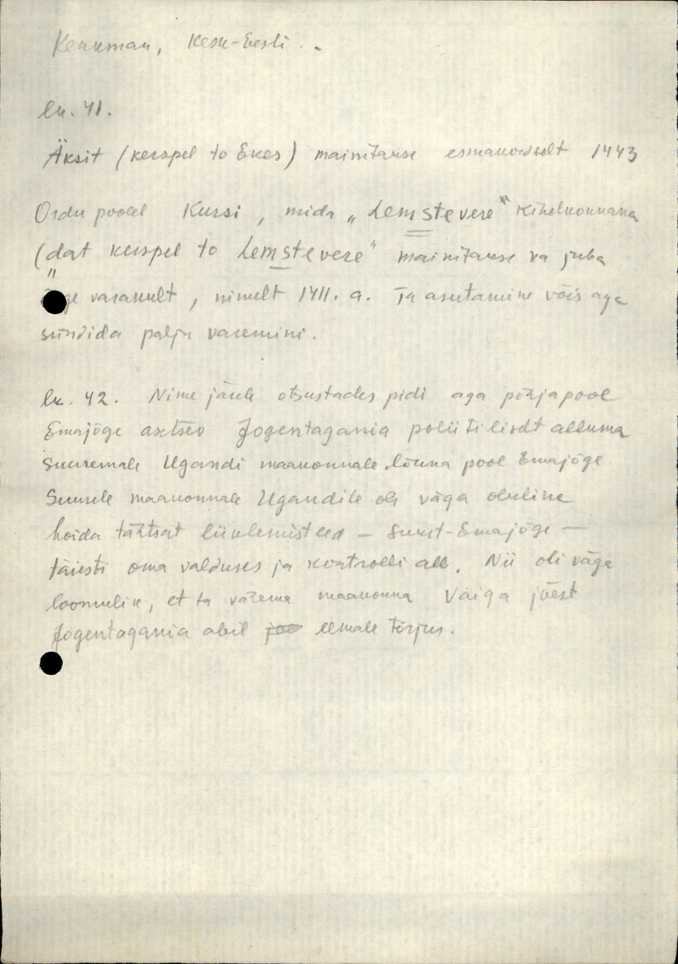 Kenkman, Kesk-Eesti..
lk. 41.
Äksit (kerspel to Ekes) mainitakse esmakordselt 1443
Ordu poolel Kursi, mida „Lemstevere" kihelkonnana
("dat kerspel to Lemstevere" mainitakse ka juba
varakult, nimelt 1411. a. Ta asutamine võis aga
sündida palju varemini.
lk. 42. Nime järele otsustades pidi aga põhjapool
Emajõge asetsev Jogentagania poliitiliselt alluma
suuremale Ugandi maakonnale lõuna pool Emajõge
Suurele maakonnale Ugandile oli väga oluline
hoida tähtsat liiklemisteed – Suur-Emajõge –
täiesti oma valduses ja kontrolli all. Nii oli väga
loomulik, et ta väiema maakonna Vaiga jõest
Jogentagania abil eemale tõrjus.